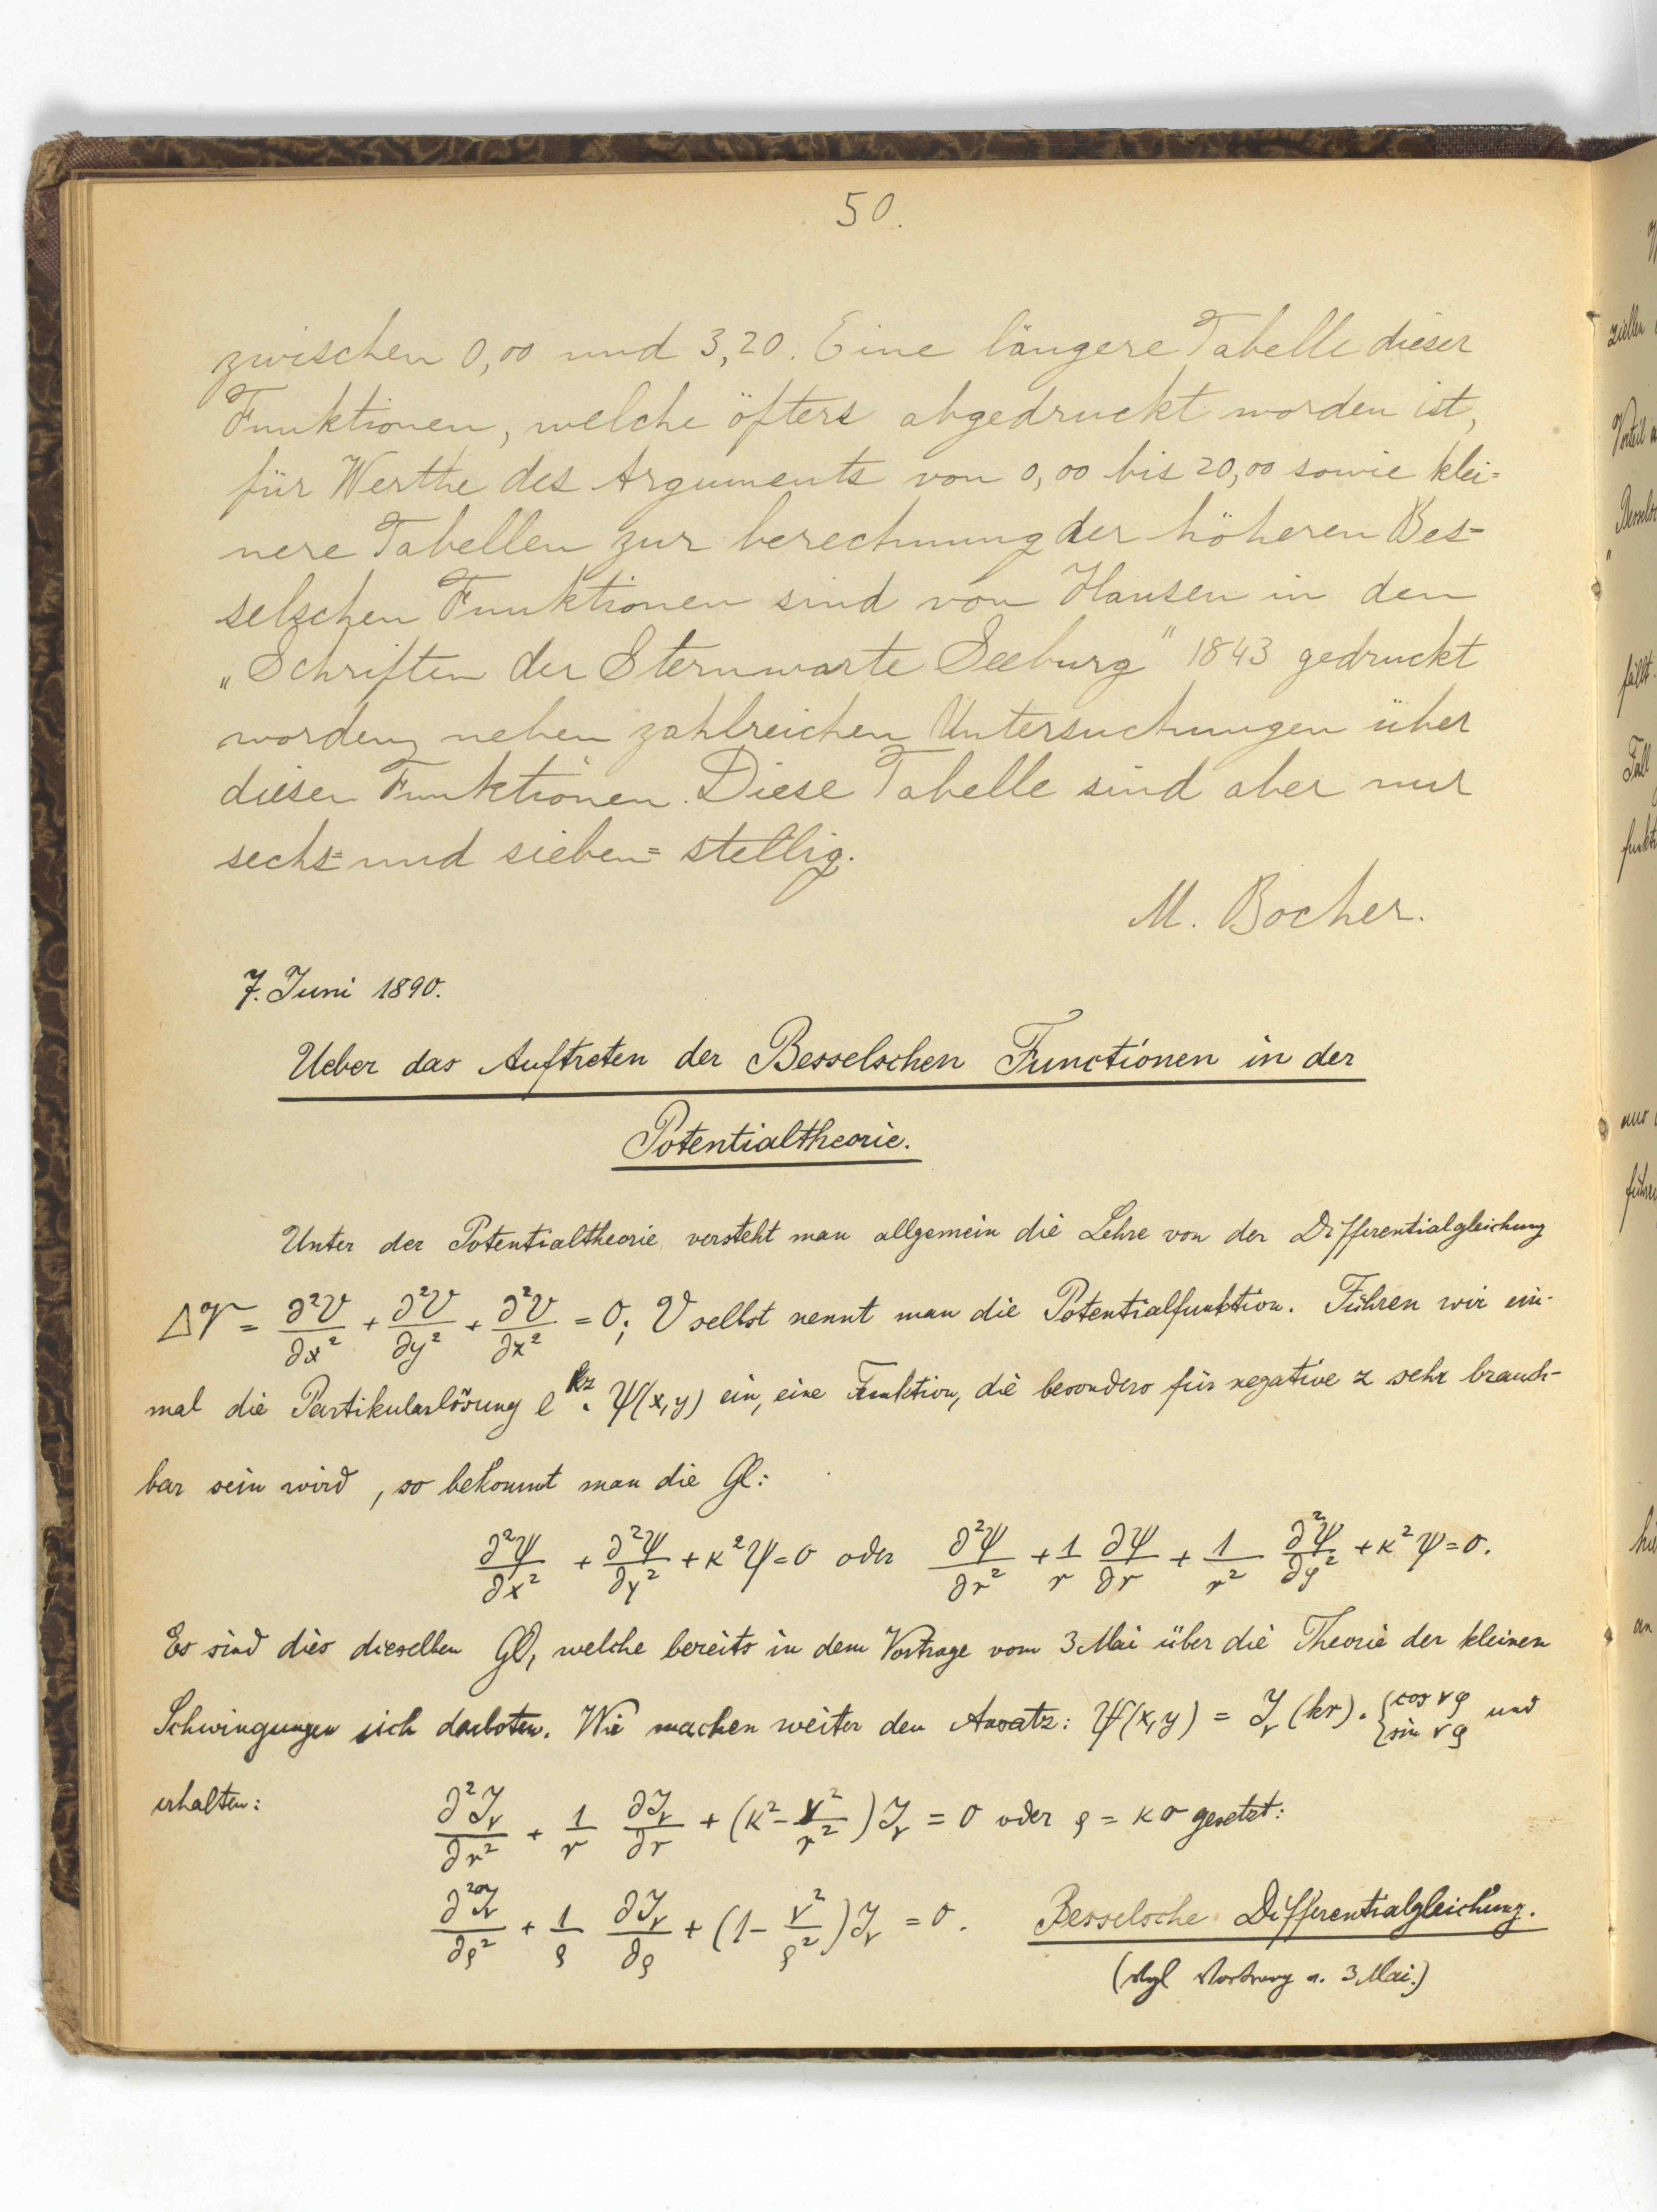 50.
zwischen 0,00 und 3,20. Eine längere Tabelle dieser
Funktionen, welche öfters abgedruckt worden ist,
für Werthe des Arguments von 0,00 bis 20,00 sowie klei=
nere Tabellen zur berechnung der höheren Bes=
selschen Funktionen sind von Hansen in den
„Schriften der Sternwarte Seeburg" 1843 gedruckt
worden, neben zahlreichen Untersuchungen über
diesen Funktionen. Diese Tabelle sind aber nur
sechs= und sieben= stellig.
M. Bocher.
7. Juni 1890.
Ueber das Auftreten der Besselschen Functionen in der
Potentialtheorie.
Unter der Potentialtheorie versteht man allgemein die Lehre von der Differentialgleichung
ΔV = ∂²V/∂x² + ∂²V/∂y² + ∂²V/∂z² = 0; V selbst nennt man die Potentialfunktion. Führen wir ein-
mal die Partikularlösung e^{kz} . ψ(x,y) ein, eine Funktion, die besonders für negative z sehr brauch-
bar sein wird, so bekommt man die Gl:
∂²ψ/∂x² + ∂²ψ/∂y² + κ²ψ = 0 oder ∂²ψ/∂r² + 1/r ∂ψ/∂r + 1/r² ∂²ψ/∂φ² + κ²ψ = 0.
Es sind dies dieselben Gl, welche bereits in dem Vortrage vom 3 Mai über die Theorie der kleinen
Schwingungen sich darboten. Wir machen weiter den Ansatz: ψ(x,y) = J_ν(kr) . {cos νφ sin νφ und
erhalten: ∂²J_ν/∂r² + 1/r ∂J_ν/∂r + (κ² - ν²/r²) J_ν = 0 oder ρ = κ r gesetzt:
∂²J_ν/∂ρ² + 1/ρ ∂J_ν/∂ρ + (1 - ν²/ρ²) J_ν = 0. Besselsche Differentialgleichung.
(Vgl Vortrag v. 3 Mai.)